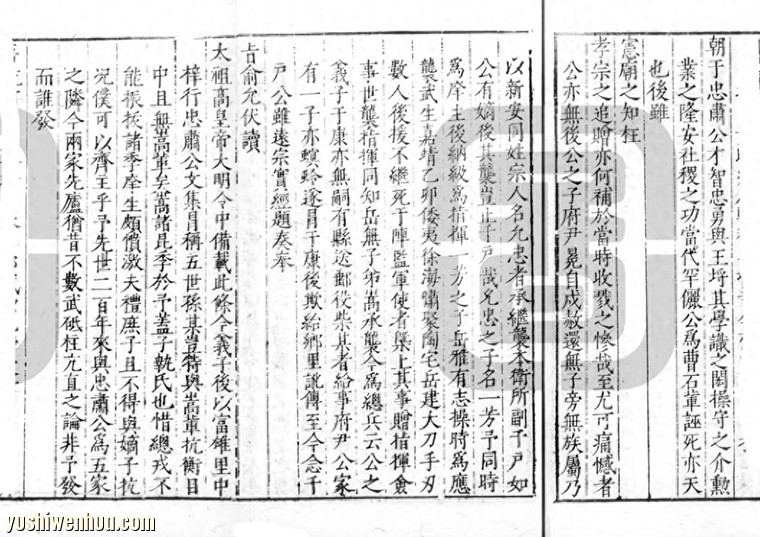 朝于忠肅公才智忠勇與王埒其學識之閎操守之介勲
業之隆安社稷之功當代罕儷公爲曹石軰誣死亦天
也後雖
憲廟之知枉
孝宗之追贈亦何補於當時收戮之慘哉至尤可痛憾者
公亦無後公之子府尹冕自戍赦還無子旁無族屬乃
以新安同姓宗人名允忠者承繼襲本衛所副千戶如
公有嫡後其襲豈止千戶哉允忠之子名一芳予同時
爲庠生後納級爲指揮一芳之子岳雅有志操時爲應
襲武生嘉靖乙卯倭夷徐海嘯聚陶宅岳建大刀手刃
數人後援不繼死于陣監軍使者槩上其事贈指揮僉
事世襲指揮同知岳無子弟嵩承襲今爲總兵云公之
義子于康亦無嗣有縣送郵役柴其者給事府尹公家
有一子亦螟蛉遂冒于康後欺給鄉里訛傳至今念千
戶公雖遠宗實經題奏奉
㫖俞允伏讀
太祖高皇帝大明令中備載此條今義子後以富雄里中
梓行忠肅公文集自稱五世孫其豈特與嵩軰抗衡目
中且無嵩軰矣嵩諸昆季於予盖子執氏也惜總戎不
能振抜諸季庠生頗償激夫禮庶子且不得與嫡子抗
況僕可以齊王乎予先世二百年來與忠肅公爲五家
之隣今兩家先廬猶昔不數武砥柱亢直之論非予發
而誰發
yushiwenhua.com